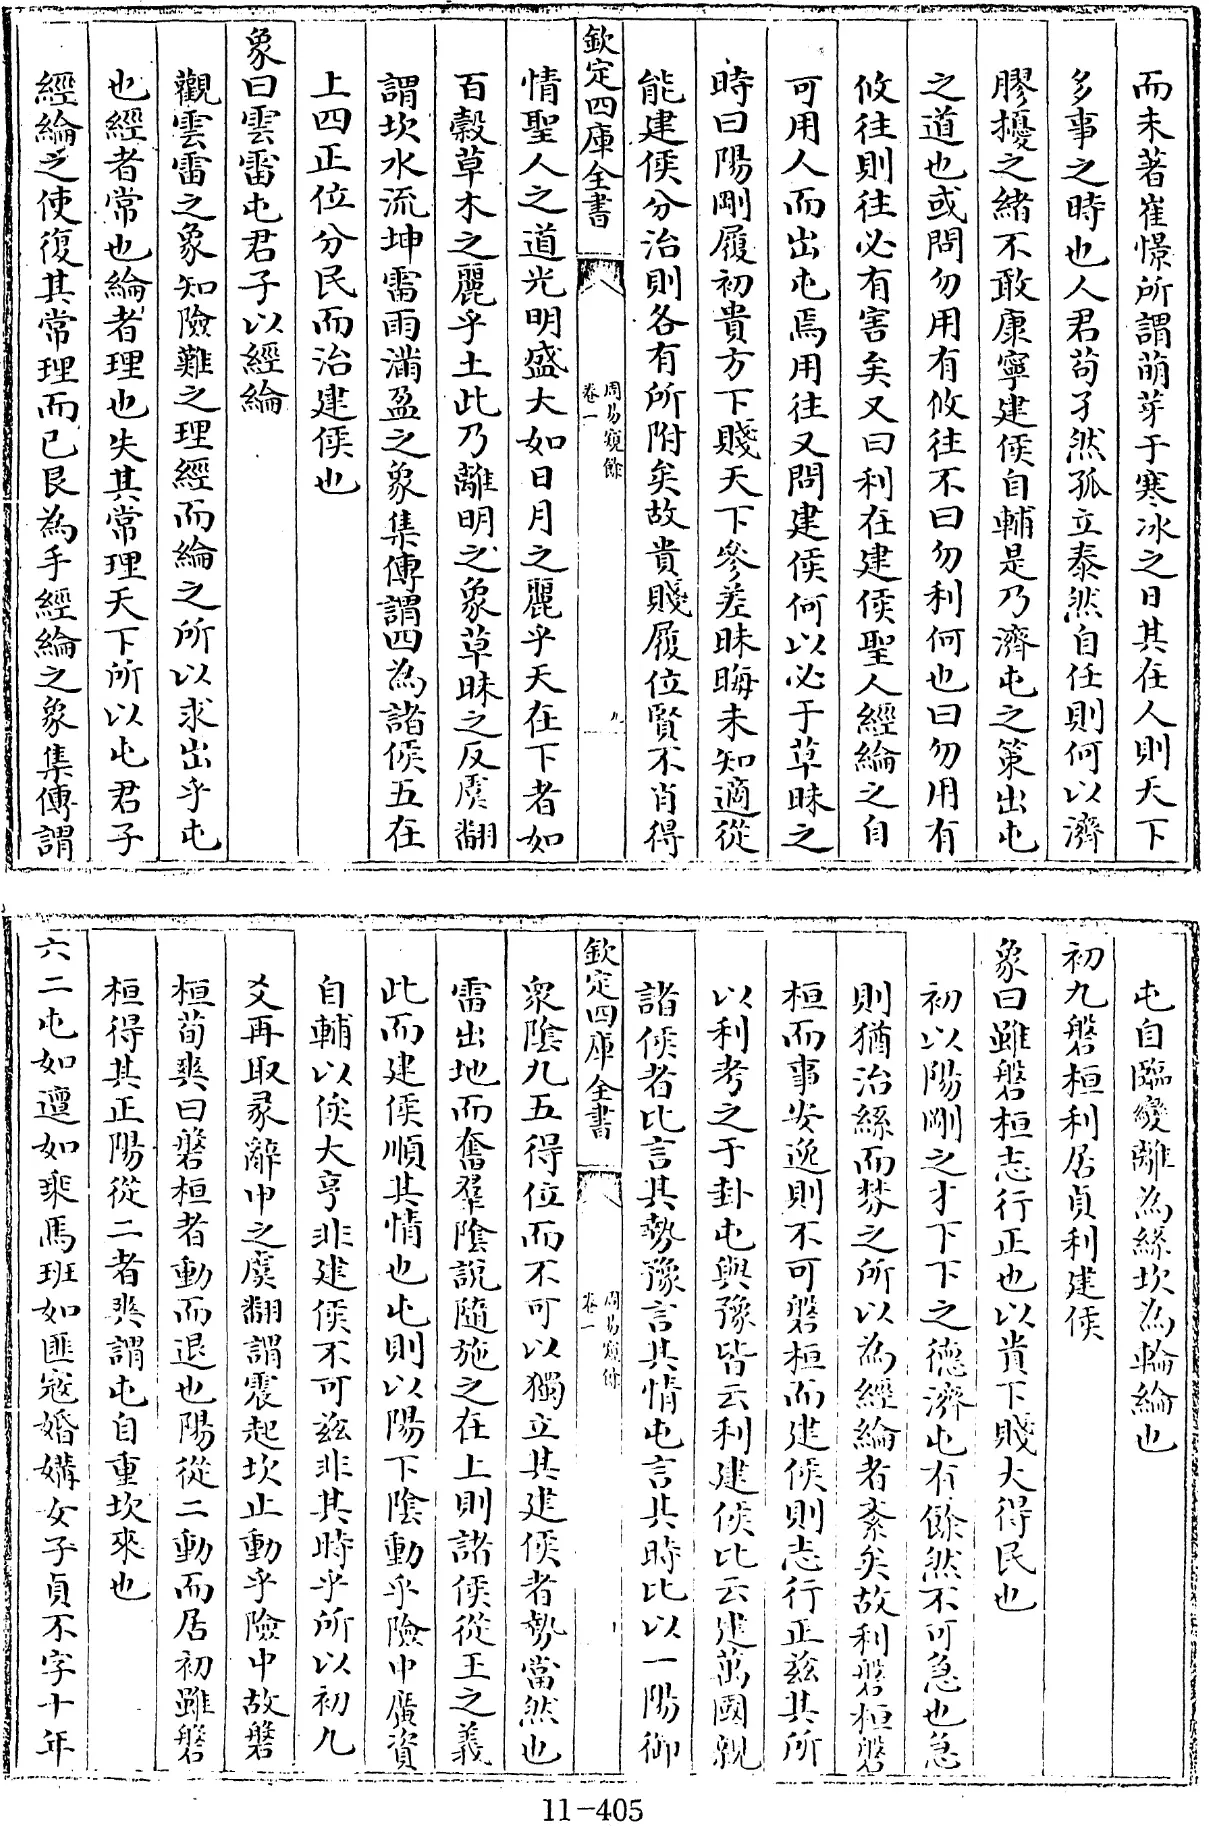 而未著崔憬所謂萌芽于寒冰之日其在人則天下
多事之時也人君苟孑然孤立泰然自任則何以濟
膠擾之緒不敢康寧建侯自輔是乃濟屯之策出屯
之道也或問勿用有攸往不曰勿利何也曰勿用有
攸往則往必有害矣又曰利在建侯聖人經綸之自
可用人而出屯焉用往又問建侯何以必于草昧之
時曰陽剛履初貴方下賤天下參差昧晦未知適從
能建侯分治則各有所附矣故貴賤履位賢不肖得
欽定四庫全書
周易窺餘
卷一
九
情聖人之道光明盛大如日月之麗乎天在下者如
百穀草木之麗乎土此乃離明之象草昧之反虞翻
謂坎水流坤雷雨滿盈之象集傳謂四為諸侯五在
上四正位分民而治建侯也
象曰雲雷屯君子以經綸
觀雲雷之象知險難之理經而綸之所以求出乎屯
也經者常也綸者理也失其常理天下所以屯君子
經綸之使復其常理而已艮為手經綸之象集傳謂
屯自臨變離為絲坎為輪綸也
初九磐桓利居貞利建侯
象曰雖磐桓志行正也以貴下賤大得民也
初以陽剛之才下下之德濟屯有餘然不可急也急
則猶治絲而棼之所以為經綸者紊矣故利磐桓磐
桓而事安逸則不可磐桓而建侯則志行正茲其所
以利考之于卦屯與豫皆云利建侯比云建萬國親
諸侯者比言其勢豫言其情屯言其時比以一陽御
欽定四庫全書
周易窺餘
卷一
衆陰九五得位而不可以獨立其建侯者勢當然也
雷出地而奮羣陰說隨施之在上則諸侯從王之義
此而建侯順其情也屯則以陽下陰動乎險中廣資
自輔以俟大亨非建侯不可茲非其時乎所以初九
爻再取彖辭申之虞翻謂震起坎止動乎險中故磐
桓荀爽曰磐桓者動而退也陽從二動而居初雖磐
桓得其正陽從二者爽謂屯自重坎來也
六二屯如邅如乘馬班如匪寇婚媾女子貞不字十年
11-405